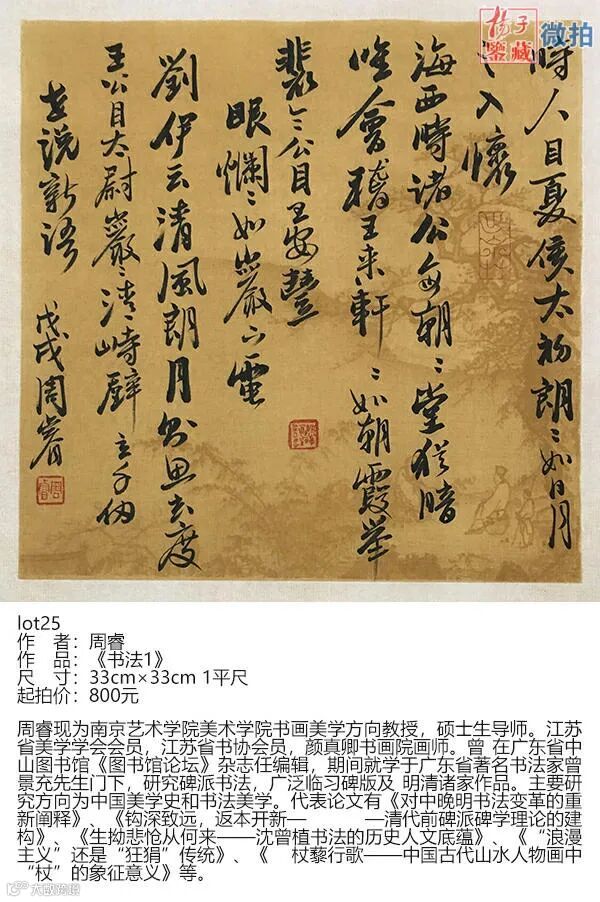 揚子
鑒藏
微拍
時人目夏侯太初朗〻如日月
之入懷
海西時諸公每朝〻堂猶暗
唯會稽王來軒〻如朝霞舉
裴令公目王安豐
眼爛〻如巖下電
劉伊云清風朗月則思玄度
王公目太尉巖〻清峙壁立千仞
世説新語 戊戌周睿
lot25
作 者：周睿
作 品：《书法1》
尺 寸：33cm×33cm 1平尺
起拍价：800元
周睿现为南京艺术学院美术学院书画美学方向教授，硕士生导师。江苏
省美学学会会员，江苏省书协会员，颜真卿书画院画师。曾 在广东省中
山图书馆《图书馆论坛》杂志任编辑，期间就学于广东省著名书法家曾
景充先生门下，研究碑派书法，广泛临习碑版及 明清诸家作品。主要研
究方向为中国美学史和书法美学。代表论文有《对中晚明书法变革的重
新阐释》、《钩深致远，返本开新— —清代前碑派碑学理论的建
构》、《生拗悲怆从何来——沈曾植书法的历史人文底蕴》、《“浪漫
主义”还是“狂狷”传统》、《 杖藜行歌——中国古代山水人物画中
“杖”的象征意义》等。